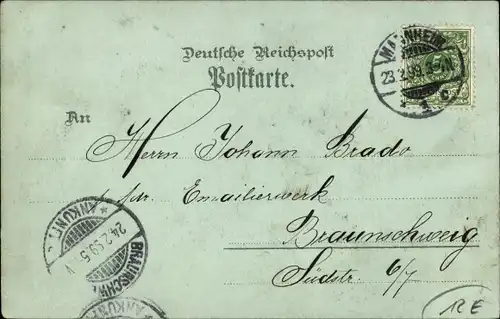 Deutsche Reichspost
Postkarte.
MANNHEIM
23.2.99.
1 c
An
Herrn Johann Brado
Emailierwerk
Braunschweig
Südstr. 6/7
ANKUNFT
24.2.99.5-
BRAUNSCHW.
ANKUNFT
RE